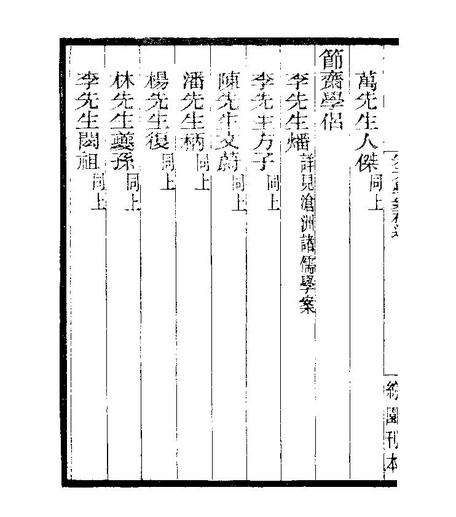 萬先生人傑同上
節齋學侶
李先生燔詳見滄洲諸儒學案
李先生方子同上
陳先生文蔚同上
潘先生柄同上
楊先生復同上
林先生夔孫同上
李先生閎祖同上